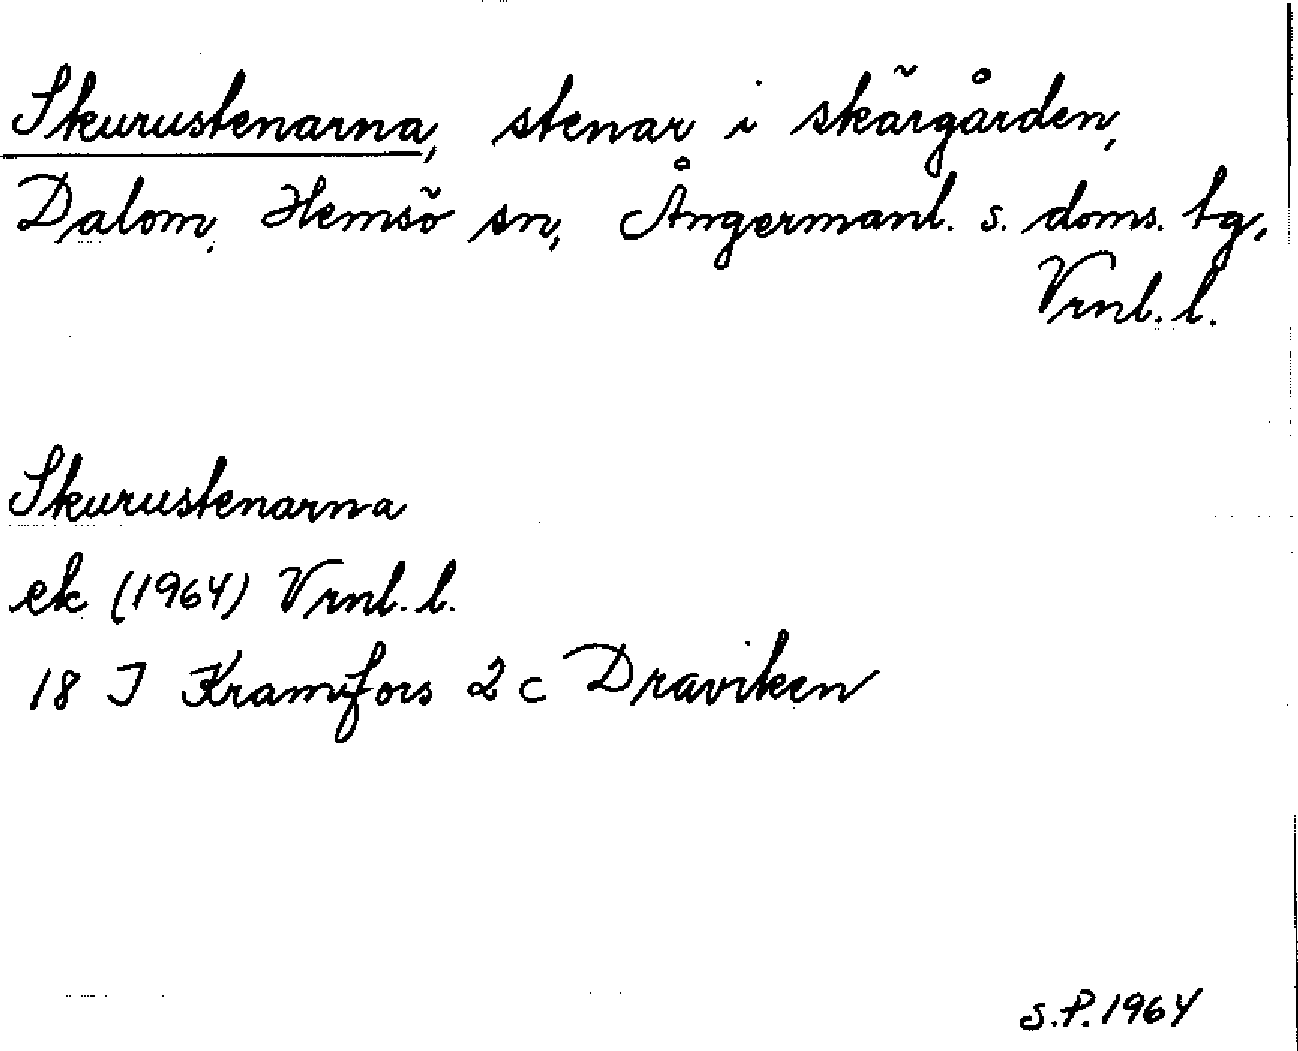 Skurustenarna, stenar i skärgården,
Dalom, Hemsö sn, Ångermanl. s. doms. tg,
Vrnl. l.
Skurustenarna
ek (1964) Vrnl. l.
18 I Kramfors 2 c Draviken
S.P. 1964